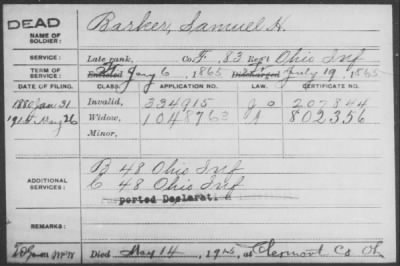 DEAD
NAME OF SOLDIER: Barker, Samuel H.
SERVICE: Late rank, Co. F. 83 Reg't Ohio Inf
TERM OF SERVICE: Enlisted Jany 6, 1865 Discharged July 19, 1865
DATE OF FILING. CLASS. APPLICATION NO. LAW. CERTIFICATE NO.
1880 Jan 31 Invalid, 334915 207844
May 26 Widow, 1048763 A 802356
Minor,
ADDITIONAL SERVICES: B 48 Ohio Inf
C 48 Ohio Inf
ported Declarati
REMARKS:
Died May 14, at Clermont Co Oh.